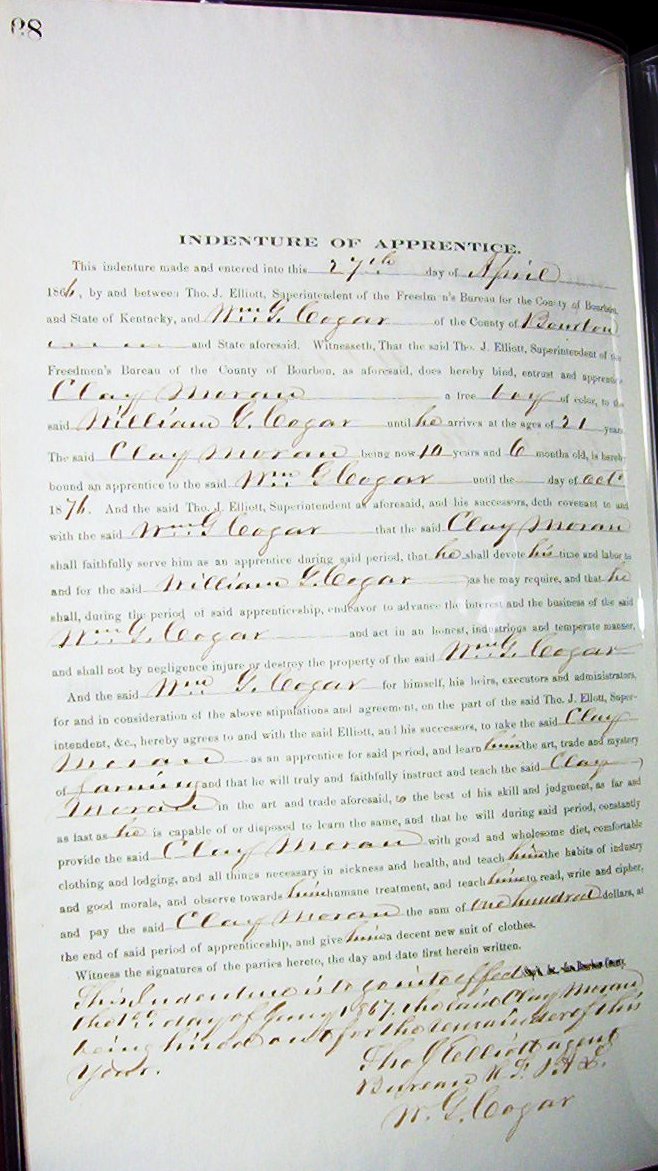 98
INDENTURE OF APPRENTICE.
This indenture made and entered into this 27th day of April
1866, by and between Tho. J. Elliott, Superintendent of the Freedmen's Bureau for the County of Bourbon,
and State of Kentucky, and Wm. G. Cogar of the County of Bourbon
and State aforesaid. Witnesseth, That the said Tho. J. Elliott, Superintendent of the
Freedmen's Bureau of the County of Bourbon, as aforesaid, does hereby bind, entrust and apprentice
Clay Moran a free boy of color, to the
said William G. Cogar until he arrives at the ages of 21 years
The said Clay Moran being now 10 years and 6 months old, is hereby
bound an apprentice to the said Wm. G Cogar until the day of Oct
1876. And the said Tho. J. Elliott, Superintendent as aforesaid, and his successors, doth covenant to and
with the said Wm. G Cogar that the said Clay Moran
shall faithfully serve him as an apprentice during said period, that he shall devote his time and labor to
and for the said William G. Cogar as he may require, and that he
shall, during the period of said apprenticeship, endeavor to advance the interest and the business of the said
Wm. G. Cogar and act in an honest, industrious and temperate manner,
and shall not by negligence injure or destroy the property of the said Wm. G. Cogar
And the said Wm. G. Cogar for himself, his heirs, executors and administrators,
for and in consideration of the above stipulations and agreement, on the part of the said Tho. J. Ellott, Super-
intendent, &c., hereby agrees to and with the said Elliott, and his successors, to take the said Clay
Moran as an apprentice for said period, and learn him the art, trade and mystery
of farming and that he will truly and faithfully instruct and teach the said Clay
Moran in the art and trade aforesaid, to the best of his skill and judgment, as far and
as fast as he is capable of or disposed to learn the same, and that he will during said period, constantly
provide the said Clay Moran with good and wholesome diet, comfortable
clothing and lodging, and all things necessary in sickness and health, and teach him the habits of industry
and good morals, and observe towards him humane treatment, and teach him to read, write and cipher,
and pay the said Clay Moran the sum of one hundred dollars, at
the end of said period of apprenticeship, and give him a decent new suit of clothes.
Witness the signatures of the parties hereto, the day and date first herein written.
This Indenture is to go into effect
the 1st day of Jany 1867, the said Clay Moran
being hired out for the remainder of this
year.
Tho J Elliott agent
Bureau R. F. &A L.
W. G. Cogar